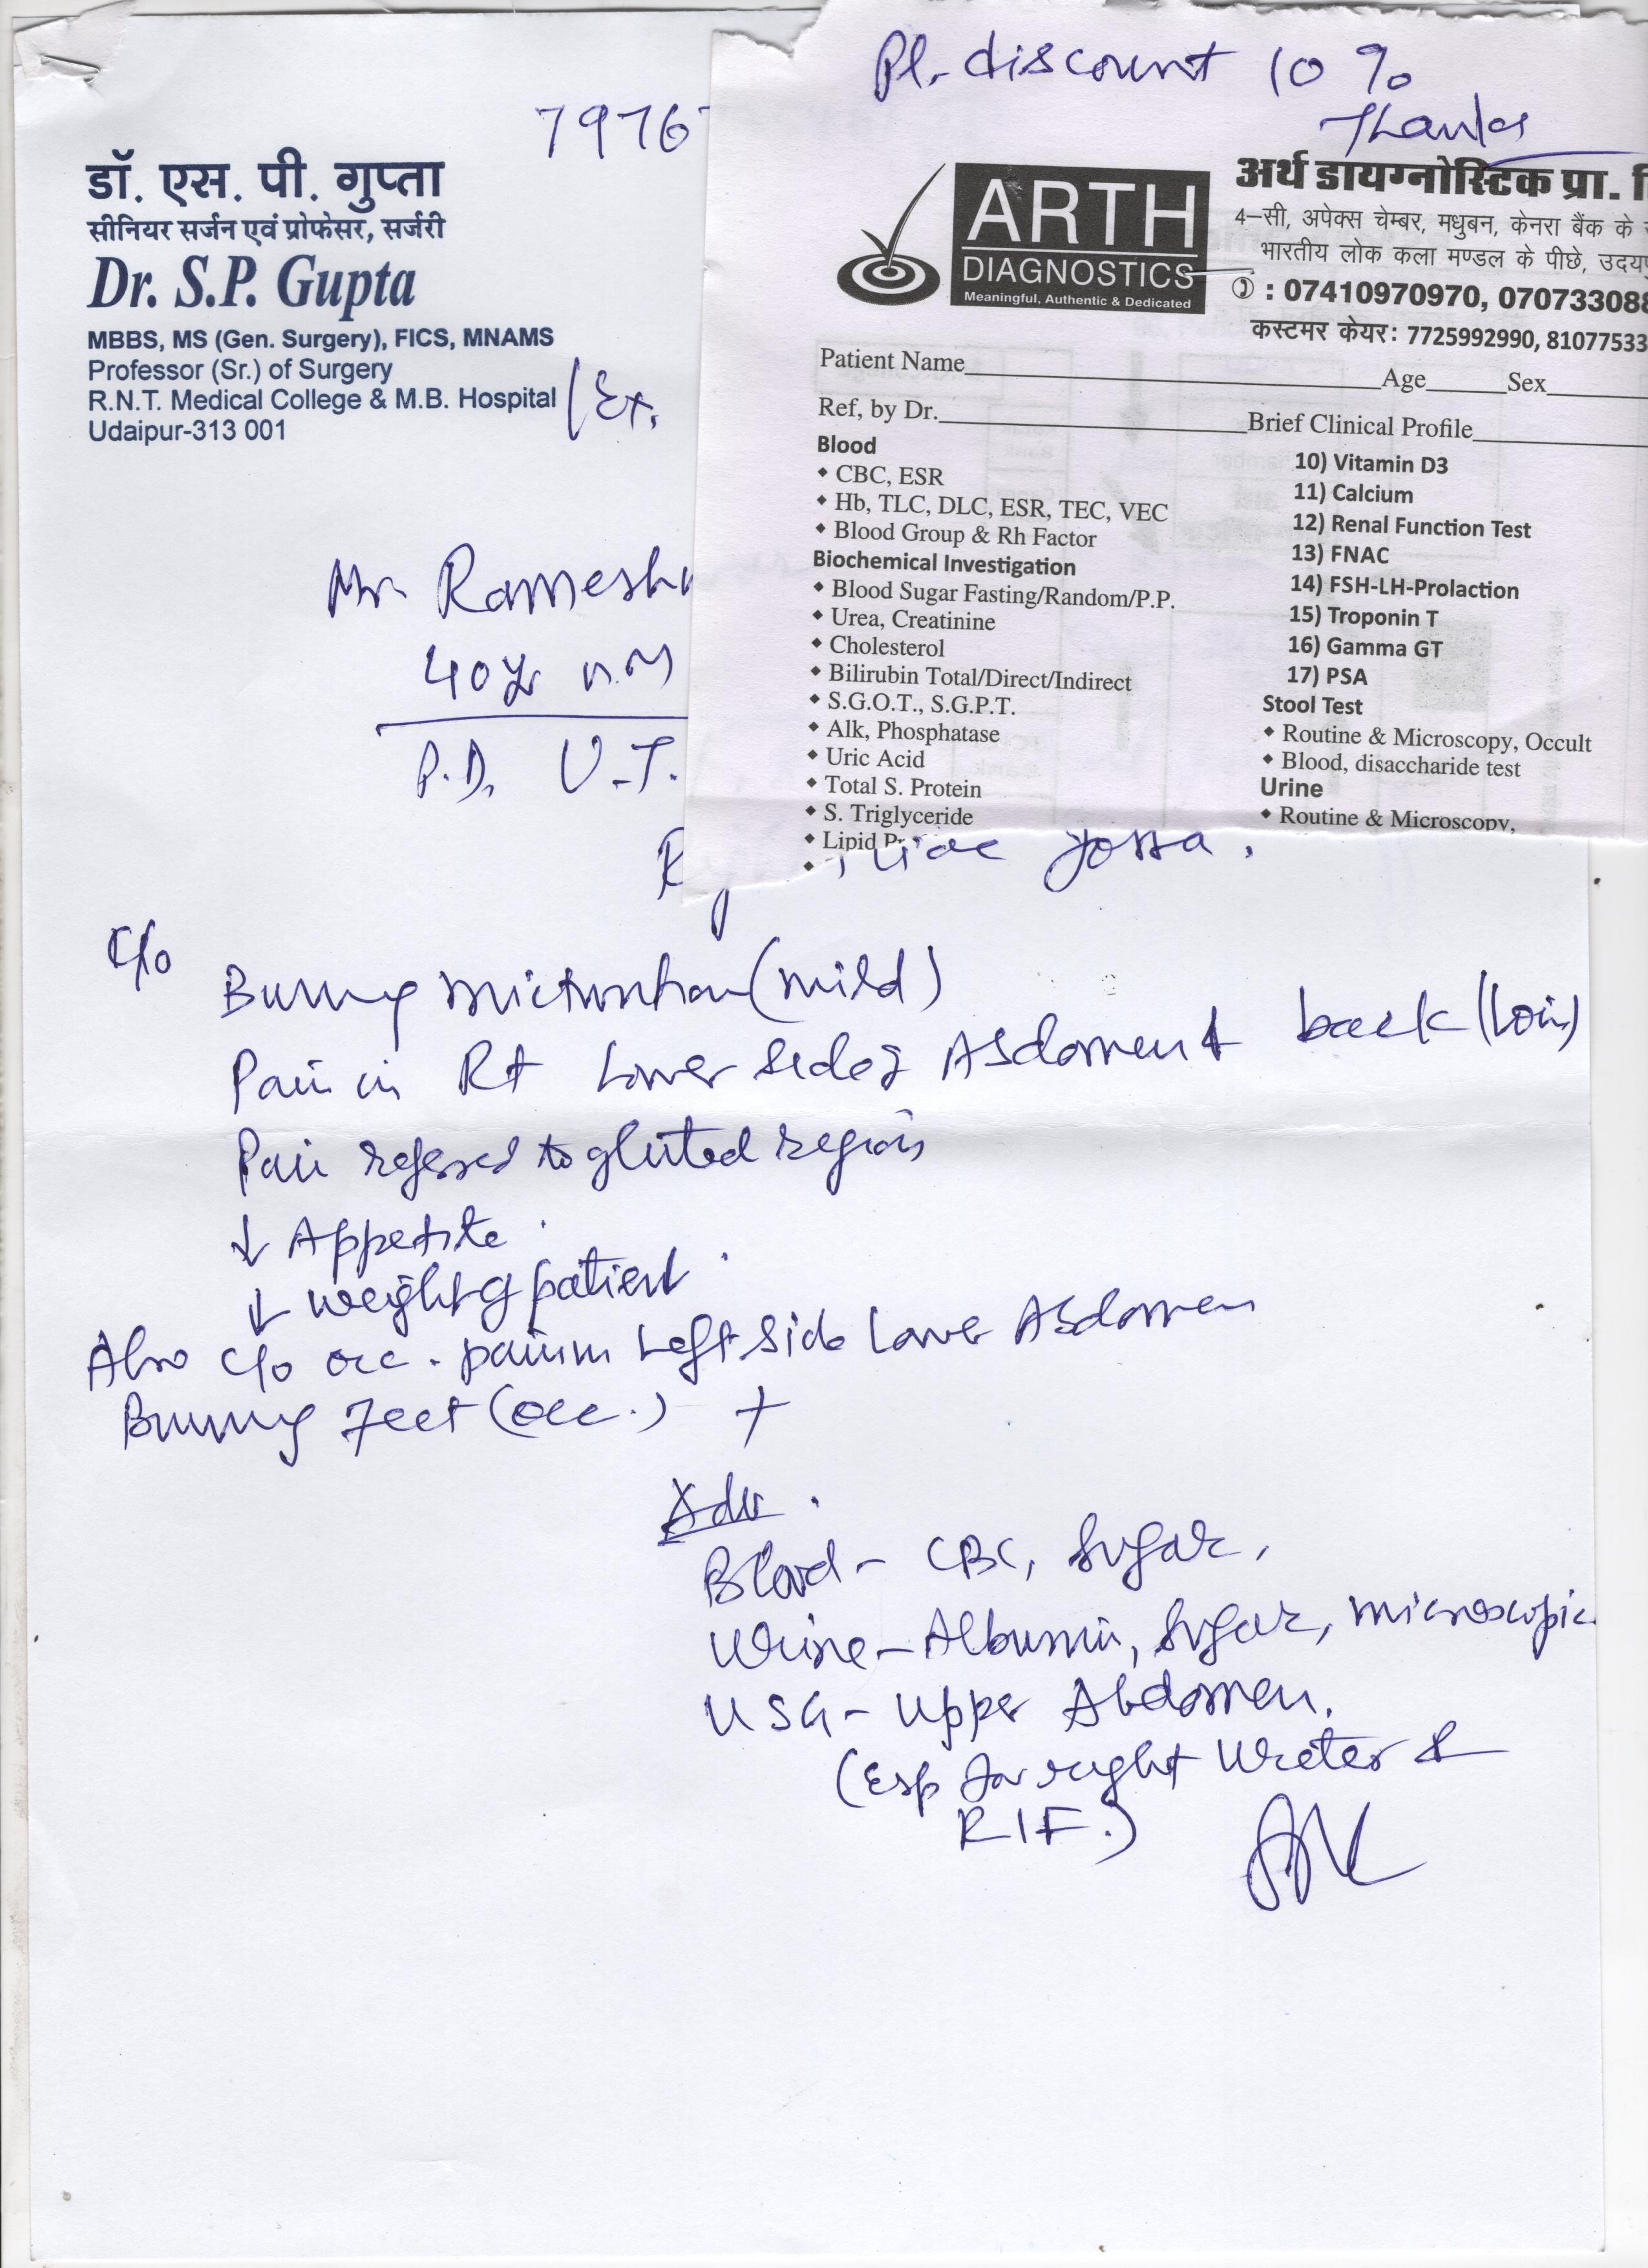 Pl. discount 10 %
Thanks
7976
डॉ. एस. पी. गुप्ता
सीनियर सर्जन एवं प्रोफेसर, सर्जरी
Dr. S.P. Gupta
MBBS, MS (Gen. Surgery), FICS, MNAMS
Professor (Sr.) of Surgery
R.N.T. Medical College & M.B. Hospital (Ex.
Udaipur-313 001
ARTH
DIAGNOSTICS
Meaningful, Authentic & Dedicated
अर्थ डायग्नोस्टिक प्रा.
4-सी, अपेक्स चेम्बर, मधुबन, केनरा बैंक के
भारतीय लोक कला मण्डल के पीछे,
: 07410970970, 070733088
कस्टमर केयर: 7725992990, 81077533
Patient Name Age Sex
Ref, by Dr. Brief Clinical Profile
Blood
CBC, ESR
Hb, TLC, DLC, ESR, TEC, VEC
Blood Group & Rh Factor
Biochemical Investigation
Blood Sugar Fasting/Random/P.P.
Urea, Creatinine
Cholesterol
Bilirubin Total/Direct/Indirect
S.G.O.T., S.G.P.T.
Alk, Phosphatase
Uric Acid
Total S. Protein
S. Triglyceride
Lipid
10) Vitamin D3
11) Calcium
12) Renal Function Test
13) FNAC
14) FSH-LH-Prolaction
15) Troponin T
16) Gamma GT
17) PSA
Stool Test
Routine & Microscopy, Occult
Blood, disaccharide test
Urine
Routine & Microscopy,
Mr Ramesh
40 yr
P.D. U.T.
fossa.
C/o
Burning micturition (mild)
Pain in Rt Lower side of Abdomen & back (Loin)
Pain referred to gluteal region
↓ Appetite
↓ weight of patient
Also c/o occ. pain in Left side Lower Abdomen
Burning Feet (occ.) +
Adv.
Blood - CBC, Sugar,
Urine - Albumin, Sugar, microscopic
USG - Upper Abdomen.
(Esp for right Ureter &
RIF.)